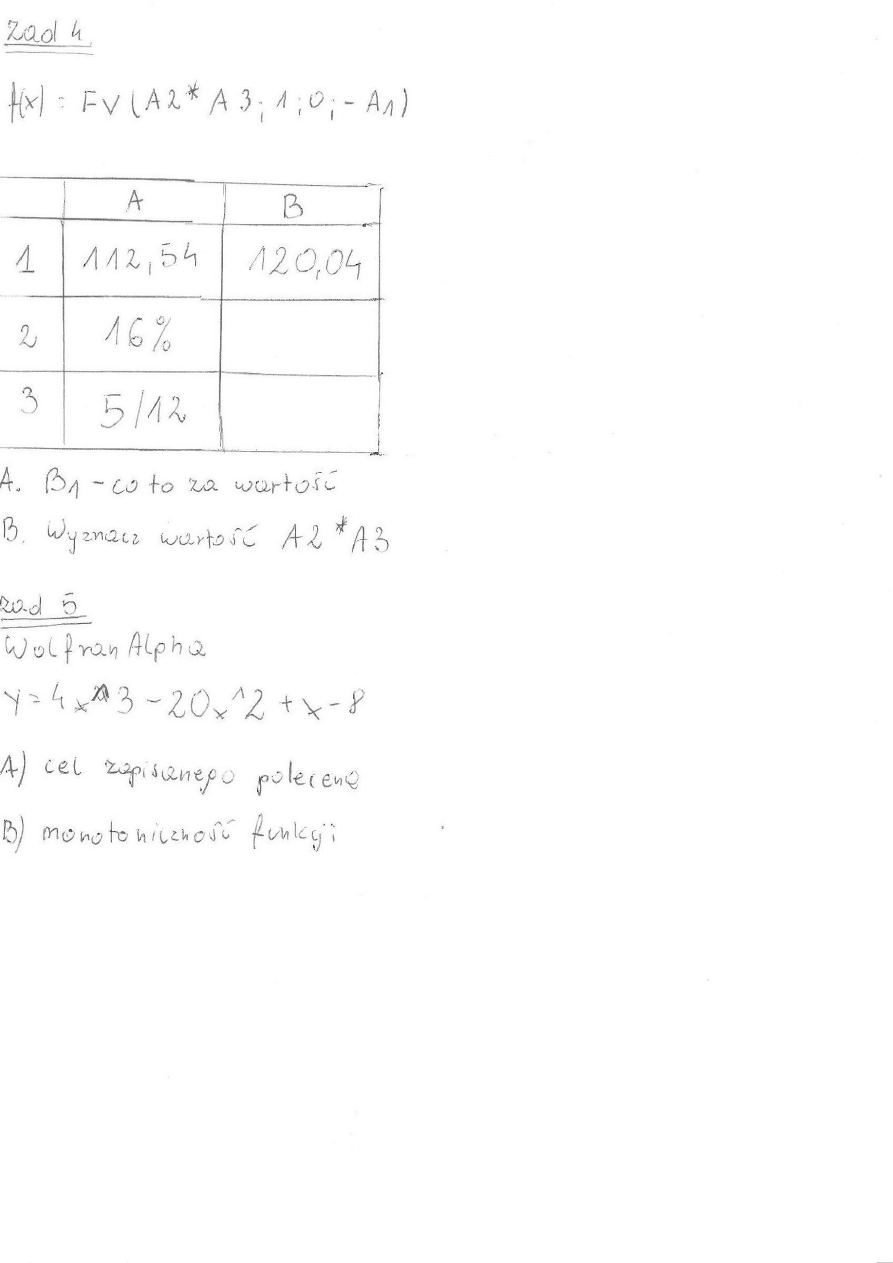 Zad 4.
f(x) = FV(A2*A3; 1; 0; -A1)
A B
1 112,54 120,04
2 16%
3 5/12
A. B1 - co to za wartość
B. Wyznacz wartość A2*A3
zad 5
Wolfran Alpha
y = 4x^3 - 20x^2 + x - 8
A) cel zapisanego polecena
B) monotoniczność funkcji